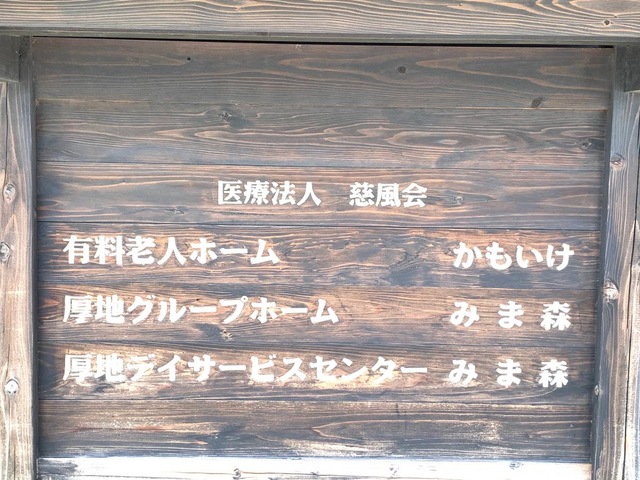 医療法人 慈風会
有料老人ホーム かもいけ
厚地グループホーム みま森
厚地デイサービスセンター みま森